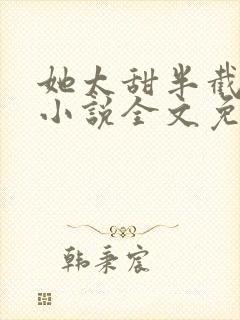 她太甜半截
小说全文免
韩秉宸